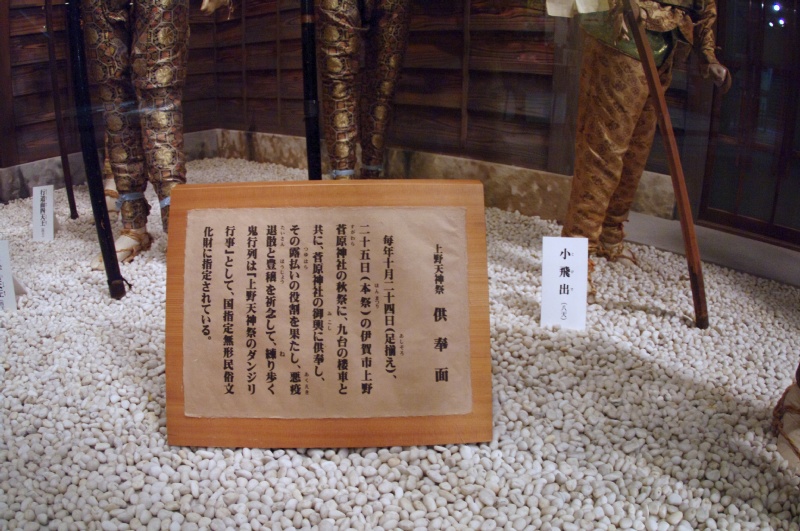 上野天神祭 供奉面
毎年十月二十四日(足揃え)、
二十五日(本祭)の伊賀市上野
菅原神社の秋祭に、九台の楼車と
共に、菅原神社の御輿に供奉し、
その露払いの役割を果たし、悪疫
退散と豊穣を祈念して、練り歩く
鬼行列は『上野天神祭のダンジリ
行事』として、国指定無形民俗文
化財に指定されている。
小飛出